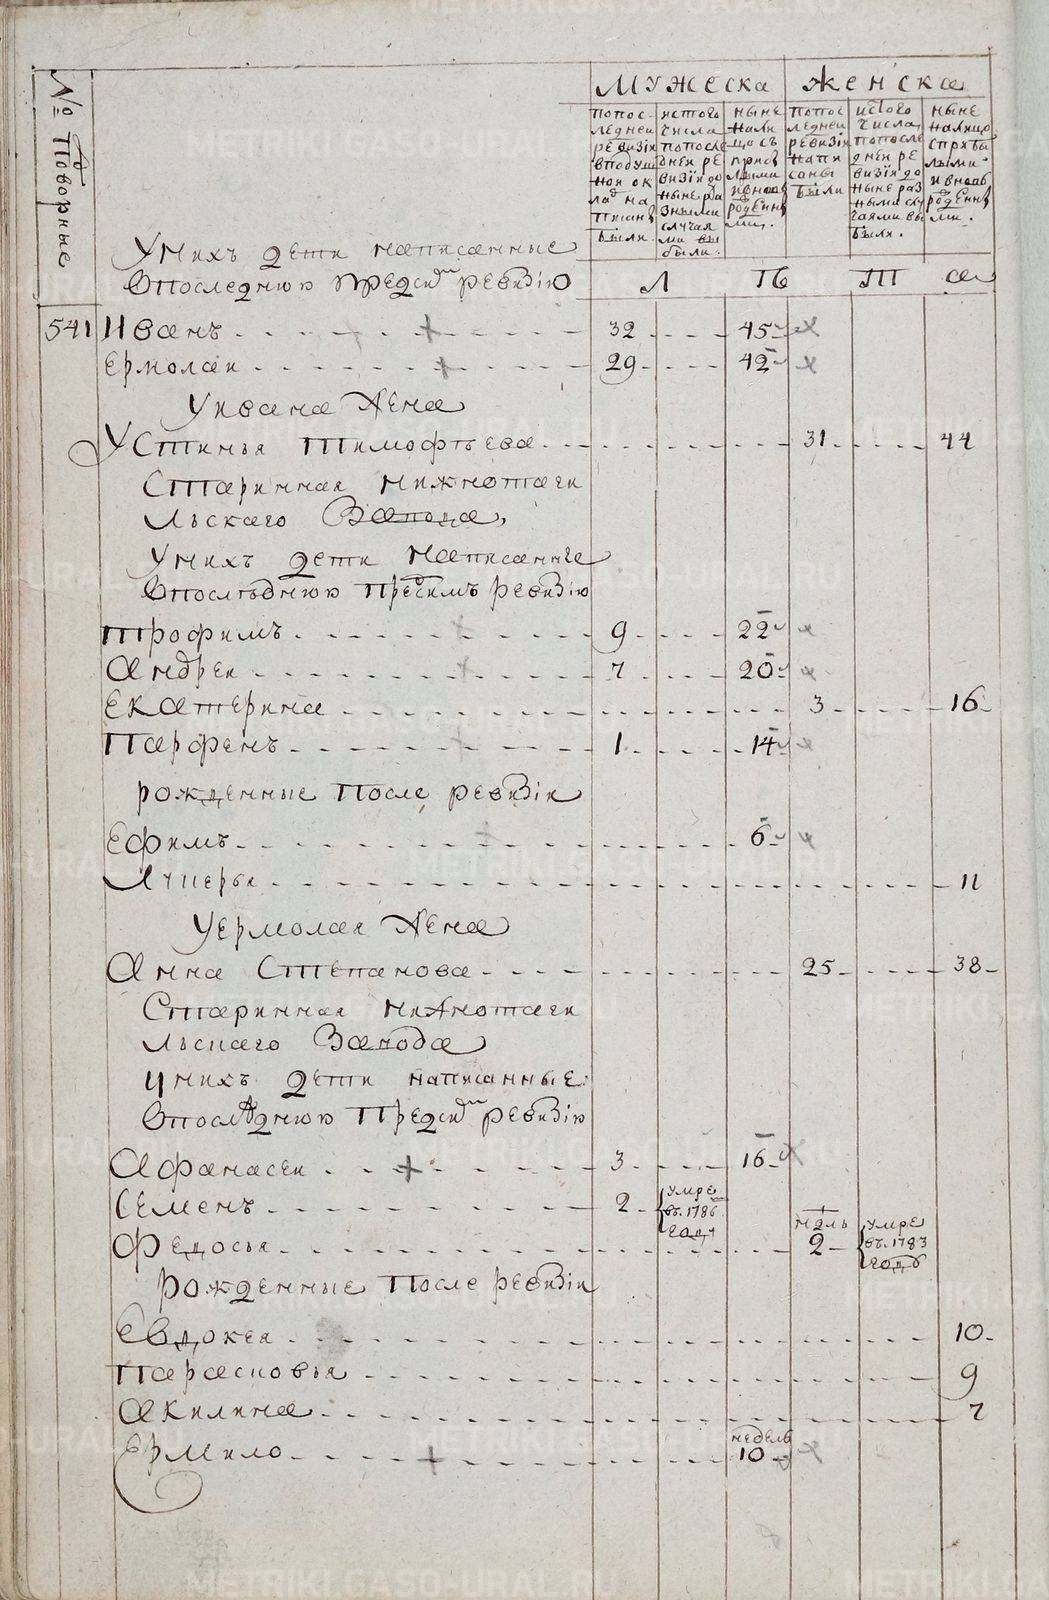 METRIKI.GASO-URAL.RU
№ Подворные
Мужеска
Женска
попос-
ледней
ревизiи
вподуш
ной ок
лад на
писанъ
были.
истого
числа
попосле
дней ре
визiи до
ныне ра
зными
случая
ми вы
были.
ныне
нали
цо съ
прибы
лыми
ивновь
рожденны
ми.
попос
ледней
ревизiи
напи
саны
были
истого
числа
попосле
дней ре
визiи до
ныне раз
ными слу
чаями вы
были.
ныне
налицо
сприбы
лыми
ивновь
рожденны
ми.
Унихъ дети написанные
впоследнюю предсимъ ревизiю
Л Ѣ Т а
541 Иванъ 32 45
Ермолаи 29 42
Уивана Жена
Устинья Тимофѣева 31 44
Старинная нижнотаги
льскаго Завода,
Унихъ дети написанные
впослѣднюю предсимъ ревизiю
Трофимъ 9 22
Андреи 7 20
Екатерина 3 16
Парфенъ 1 14
рожденные после ревизiи
Ефимъ 6
Лукерья 11
Уермолая Жена
Анна Степанова 25 38
Старинная нижнотаги
льскаго Завода
Унихъ дети написанные
впослѣднюю предсимъ ревизiю
Афанасеи 3 16
Семенъ 2 умре въ 1786 годѣ
Федосья недѣль 2 умре въ 1783 годѣ
рожденные после ревизiи
Евдокея 10
Парасковья 9
Акилина 7
Ермило недель 10